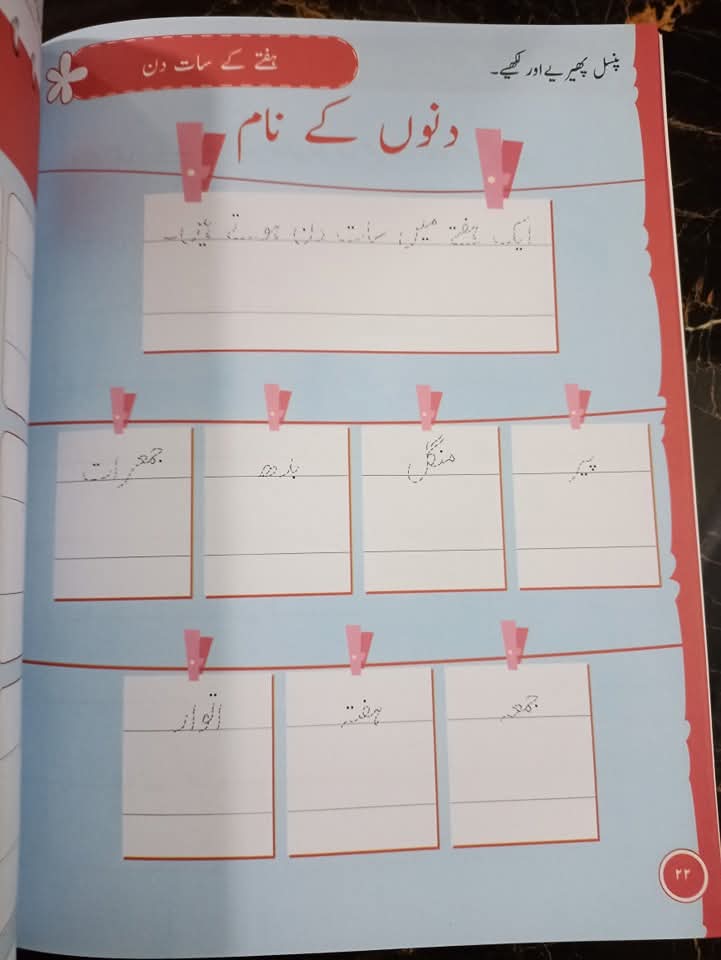 پنسل پھیریے اور لکھیے۔
ہفتے کے سات دن
دنوں کے نام
ایک ہفتے میں سات دن ہوتے ہیں۔
پیر
منگل
بدھ
جمعرات
جمعہ
ہفتہ
اتوار
۲۲